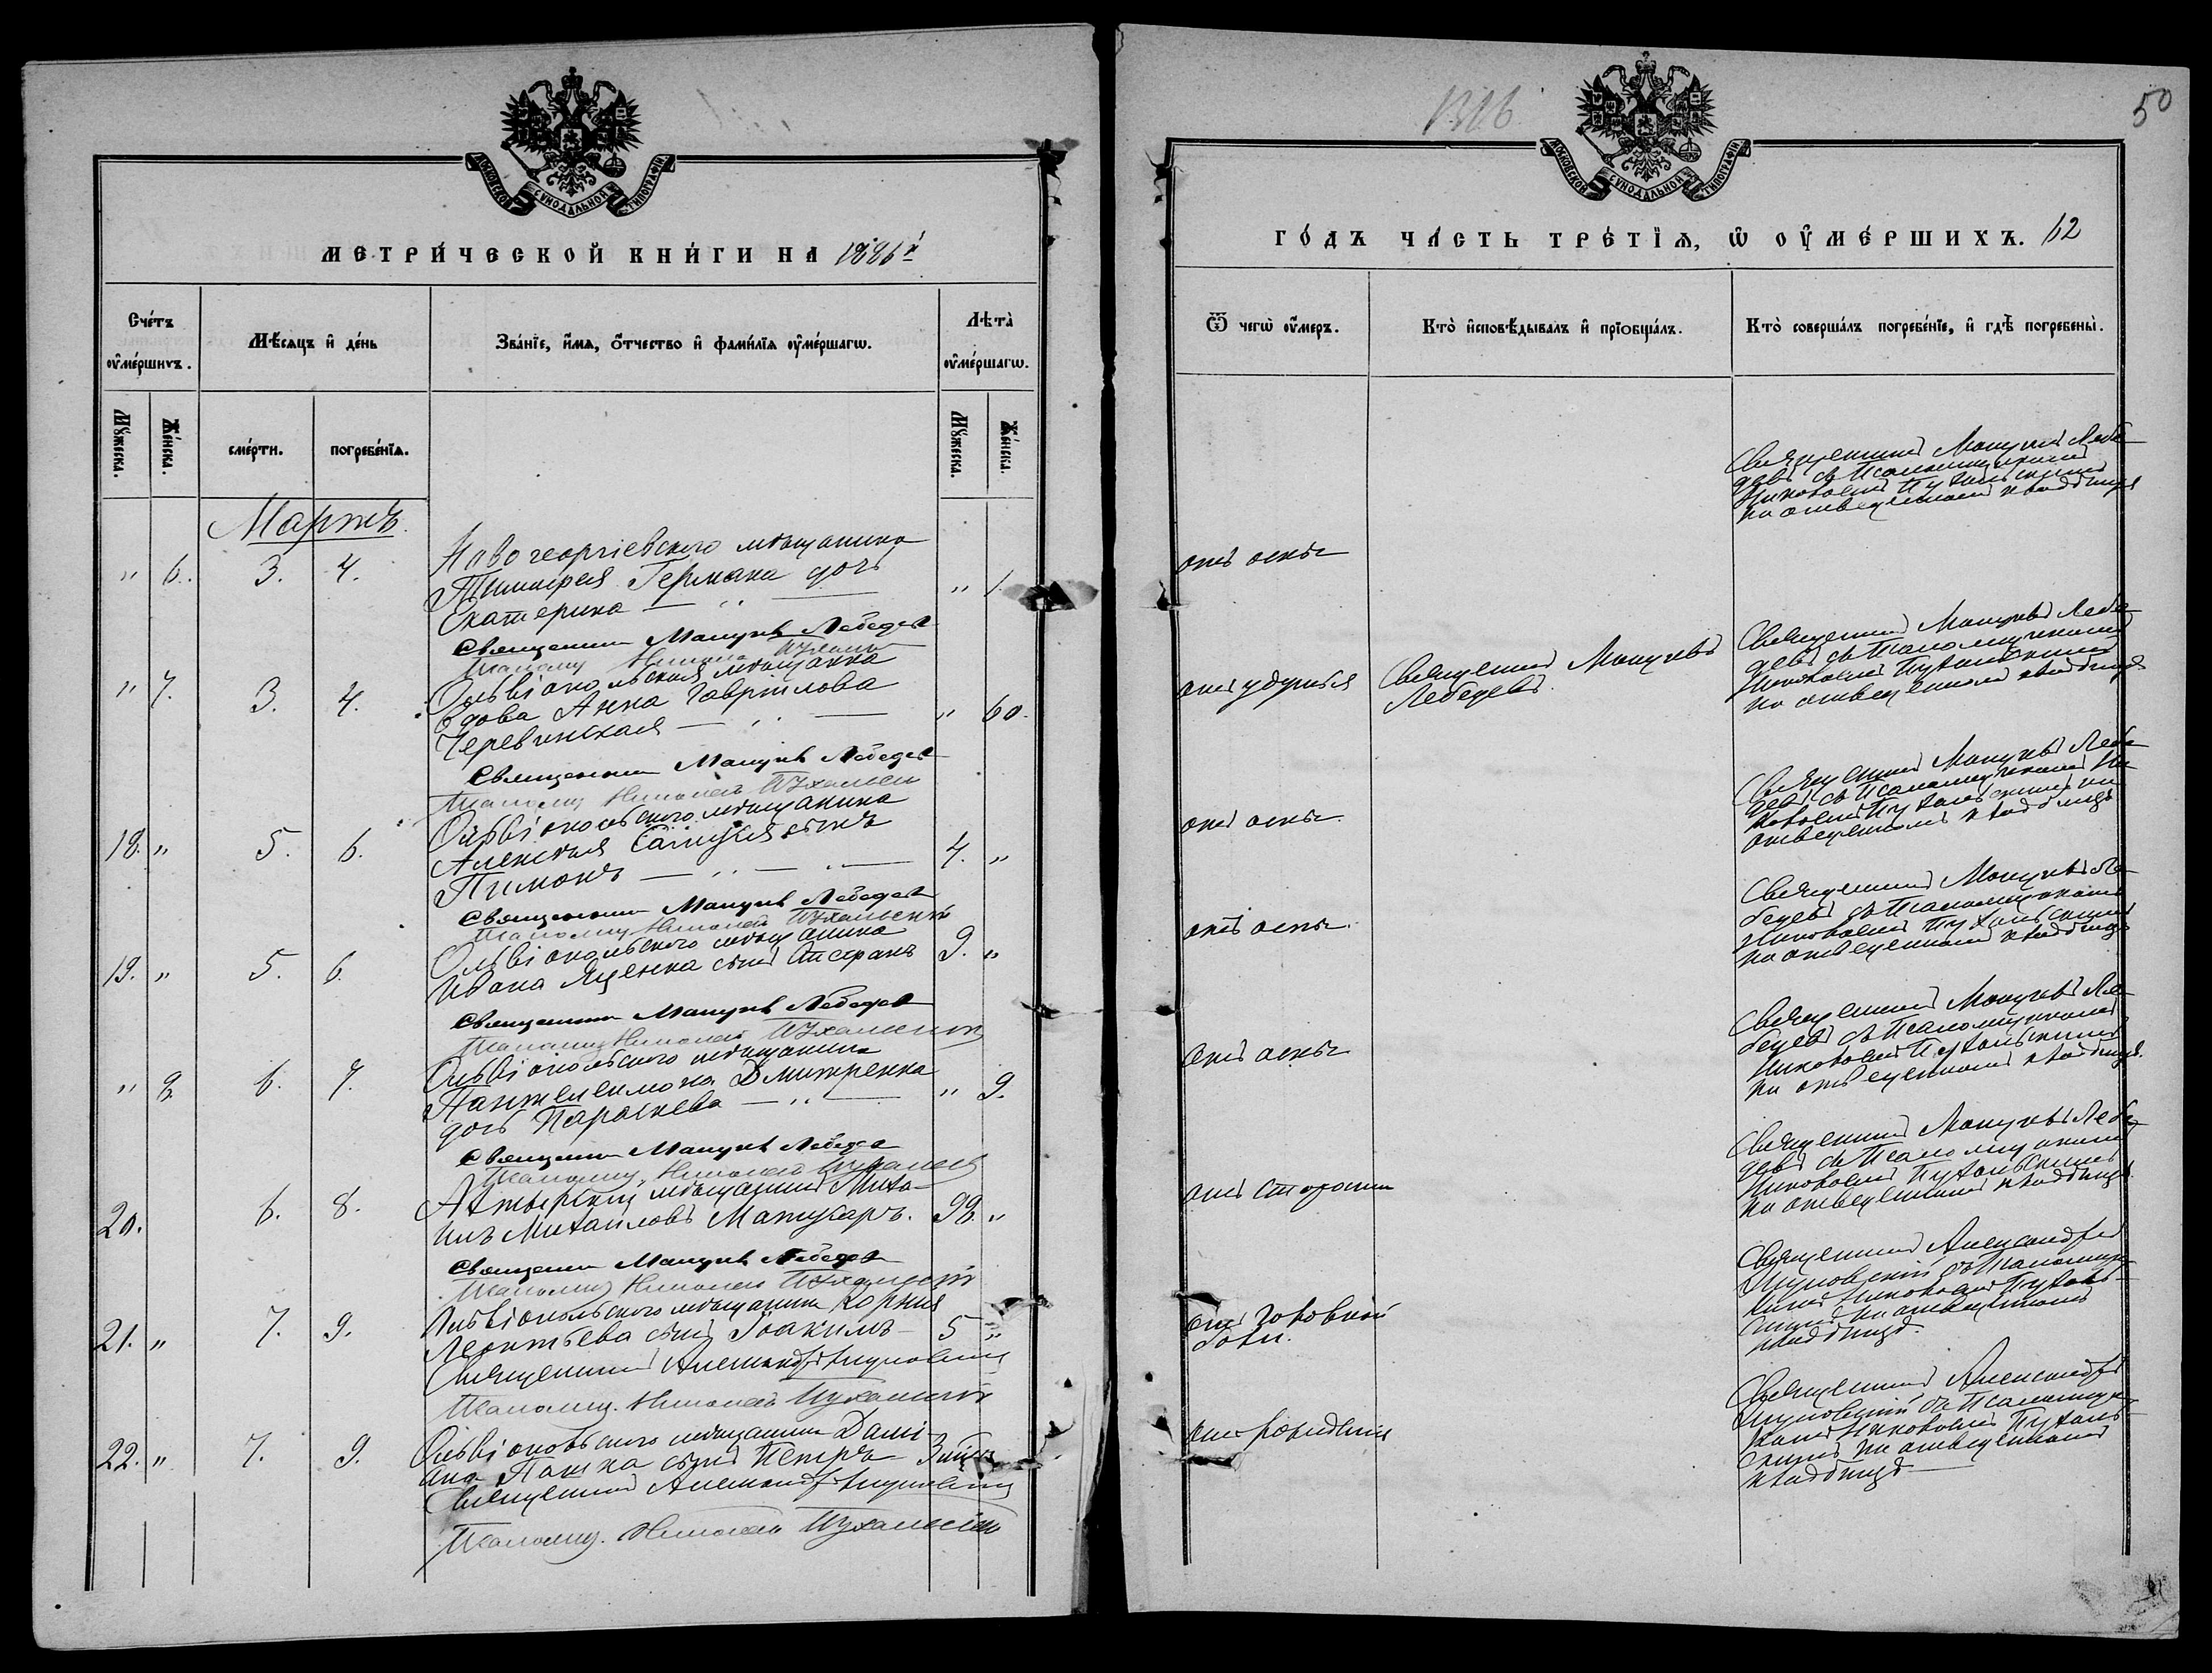 МОСКОВСКОЙ СУНОДАЛЬНОЙ ТИПОГРАФІИ
МЕТРИ́ЧЕСКОЙ КНИ́ГИ НА 1886й
Сче́тъ оу҆ме́ршихъ.
Мѣ́сяцъ и҆ де́нь
Зва́нїе, и҆́мѧ, ѻ҆́тчество и҆ фами́лїѧ оу҆ме́ршагѡ.
Лѣта̀ оу҆ме́ршагѡ.
Мꙋ́жеска.
Же́нска.
сме́рти.
погребе́нїѧ.
Мꙋ́жеска.
Же́нска.
Мартъ.
Новогеоргіевского мѣщанина
" 6. 3. 4. Тимофея Германа дочь " 1.
Екатерина — " —
Священникъ Мануилъ Лебедевъ
Псаломщ Николай
Ольвіопольская мѣщанка
" 7. 3. 4. вдова Анна Гаврілова " 60.
Черевинская — " —
Священникъ Мануилъ Лебедевъ
Псаломщ Николай
Ольвіопольского мѣщанина
18. " 5. 6. Алексѣя сынъ 4. "
Пимонъ — " —
Священникъ Мануилъ Лебедевъ
Псаломщ Николай Пухальскій
Ольвіопольского мѣщанина
19. " 5. 6. Ивана Яценка сынъ Стефанъ 9. "
Священникъ Мануилъ Лебедевъ
Псаломщ Николай Пухальскій
Ольвіопольского мѣщанина
" 8. 6. 7. Пантелеимона Дмитренка " 9.
дочь Параскева — " —
Священникъ Мануилъ Лебедевъ
Псаломщ. Николай Пухальскій
Ахтырскій мѣщанинъ Миха-
20. 6. 8. илъ Михаиловъ 98. "
Священникъ Мануилъ Лебедевъ
Псаломщ Николай Пухальскій
Ольвіопольского мѣщанина Корнія
21. " 7. 9. Леонтьева сынъ Іоакимъ — 5 "
Священникъ Александръ
Псаломщ. Николай Пухальскій
Ольвіопольского мѣщанина Дані-
22. " 7. 9. сынъ Петръ
Священникъ Александръ
Псаломщ. Николай Пухальскій
50
МОСКОВСКОЙ СУНОДАЛЬНОЙ ТИПОГРАФІИ
ГО́ДЪ ЧА́СТЬ ТРЕ́ТЇѦ, Ѡ҆ ОУ҆МЕ́РШИХЪ. 62
Ѿ чегѡ̀ оу҆́меръ.
Кто̀ и҆сповѣ́дывалъ и҆ прїобща́лъ.
Кто̀ соверша́лъ погребе́нїе, и҆ гдѣ̀ погребены̀.
отъ оспы
Священникъ Мануилъ Лебе-
девъ съ Псаломщикомъ
Николаемъ Пухальскимъ
на отведенномъ кладбищѣ
отъ удушья
Священникъ Мануилъ
Лебедевъ.
Священникъ Мануилъ Лебе-
девъ съ Псаломщикомъ
Николаемъ Пухальскимъ
на отведенномъ кладбищѣ
отъ оспы.
Священникъ Мануилъ Лебе-
девъ съ Псаломщикомъ Ни-
колаемъ Пухальскимъ на
отведенномъ кладбищѣ
отъ оспы.
Священникъ Мануилъ Ле-
бедевъ съ Псаломщикомъ
Николаемъ Пухальскимъ
на отведенномъ кладбищѣ
отъ оспы
Священникъ Мануилъ Ле-
бедевъ съ Псаломщикомъ
Николаемъ Пухальскимъ
на отведенномъ кладбищѣ.
отъ старости
Священникъ Мануилъ Лебе-
девъ съ Псаломщикомъ
Николаемъ Пухальскимъ
на отведенномъ кладбищѣ
отъ головной
боли.
Священникъ Александръ
съ Псаломщи-
комъ Николаемъ Пухаль-
скимъ на отведенномъ
кладбищѣ.
отъ рожденія
Священникъ Александръ
съ Псаломщи-
комъ Николаемъ Пухаль-
скимъ на отведенномъ
кладбищѣ —